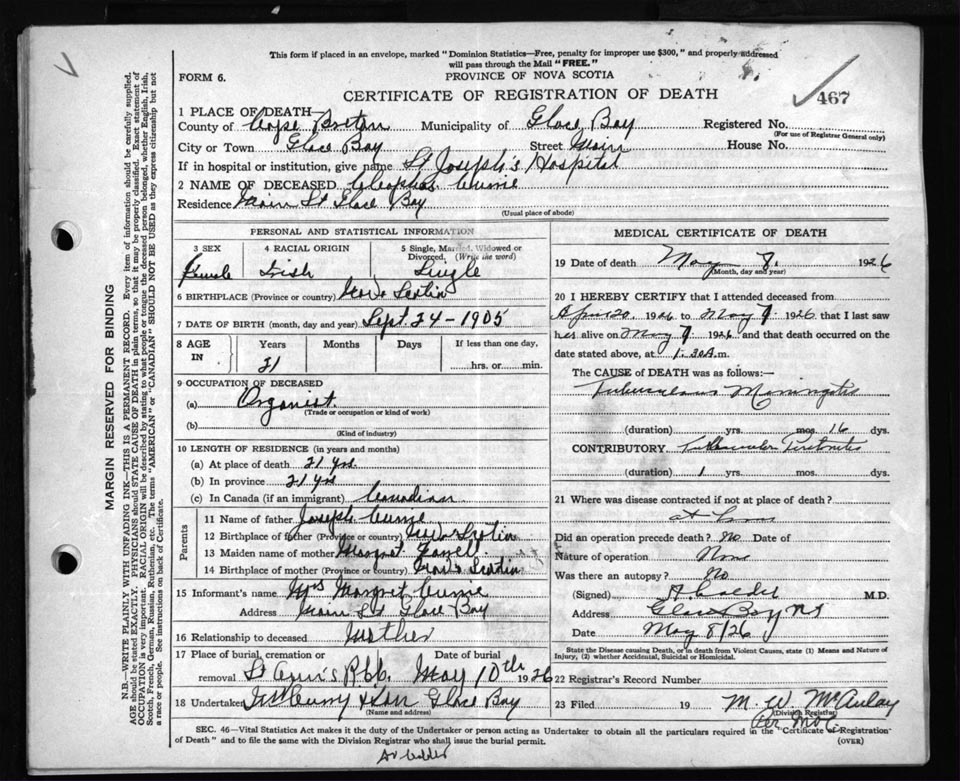 This form if placed in an envelope, marked "Dominion Statistics—Free, penalty for improper use $300," and properly addressed
will pass through the Mail "FREE."
FORM 6.
PROVINCE OF NOVA SCOTIA
CERTIFICATE OF REGISTRATION OF DEATH
467
1 PLACE OF DEATH
County of Cape Breton Municipality of Glace Bay Registered No.
(For use of Registrar General only)
City or Town Glace Bay Street Main House No.
If in hospital or institution, give name St Joseph's Hospital
2 NAME OF DECEASED Cleophas Currie
Residence Main St Glace Bay
(Usual place of abode)
PERSONAL AND STATISTICAL INFORMATION
3 SEX 4 RACIAL ORIGIN 5 Single, Married, Widowed or Divorced, (Write the word)
Female Irish Single
6 BIRTHPLACE (Province or country) Nova Scotia
7 DATE OF BIRTH (month, day and year) Sept. 24-1905
8 AGE IN Years Months Days If less than one day,
21 hrs. or min.
9 OCCUPATION OF DECEASED
(a) Organist
(Trade or occupation or kind of work)
(b)
(Kind of industry)
10 LENGTH OF RESIDENCE (in years and months)
(a) At place of death 21 yrs.
(b) In province 21 yrs
(c) In Canada (if an immigrant) Canadian
Parents
11 Name of father Joseph Currie
12 Birthplace of father (Province or country) Nova Scotia
13 Maiden name of mother Margret
14 Birthplace of mother (Province or country) Nova Scotia
15 Informant's name Mrs Margret Currie
Address Main St Glace Bay
16 Relationship to deceased Mother
17 Place of burial, cremation or Date of burial
removal St Ann's May 10th 1926
18 Undertaker McCurry & Son Glace Bay
(Name and address)
MEDICAL CERTIFICATE OF DEATH
19 Date of death May 7. 1926
(Month, day and year)
20 I HEREBY CERTIFY that I attended deceased from
April 20. 1926 to May 7. 1926 that I last saw
her alive on May 7 1926 and that death occurred on
date stated above, at 1.30 A.m.
The CAUSE of DEATH was as follows:—
Tuberculous Meningitis
(duration) yrs. mos. 16 dys.
CONTRIBUTORY
(duration) 1 yrs. mos. dys.
21 Where was disease contracted if not at place of death?
at home
Did an operation precede death? No Date of
Nature of operation None
Was there an autopsy? No
(Signed) M.D.
Address Glace Bay NS
Date May 8/26
State the Disease causing Death, or in death from Violent Causes, state (1) Means and Nature of
Injury, (2) whether Accidental, Suicidal or Homicidal.
22 Registrar's Record Number
23 Filed 19 M. W. McAulay
(Division Registrar)
Per
SEC. 46—Vital Statistics Act makes it the duty of the Undertaker or person acting as Undertaker to obtain all the particulars required in the "Certificate of Registration
of Death" and to file the same with the Division Registrar who shall issue the burial permit. (OVER)
MARGIN RESERVED FOR BINDING
N.B.—WRITE PLAINLY WITH UNFADING INK—THIS IS A PERMANENT RECORD. Every item of information should be carefully supplied.
AGE should be stated EXACTLY. PHYSICIANS should STATE CAUSE OF DEATH in plain terms, so that it may be properly classified. Exact statement of
OCCUPATION is very important. RACIAL ORIGIN will be described by stating to what people or tongue the deceased person belonged, whether English, Irish,
Scotch, French, German, Russian, Ruthenian, etc. The terms "AMERICAN" or "CANADIAN" SHOULD NOT BE USED as they express citizenship but not
a race or people. See instructions on back of Certificate.